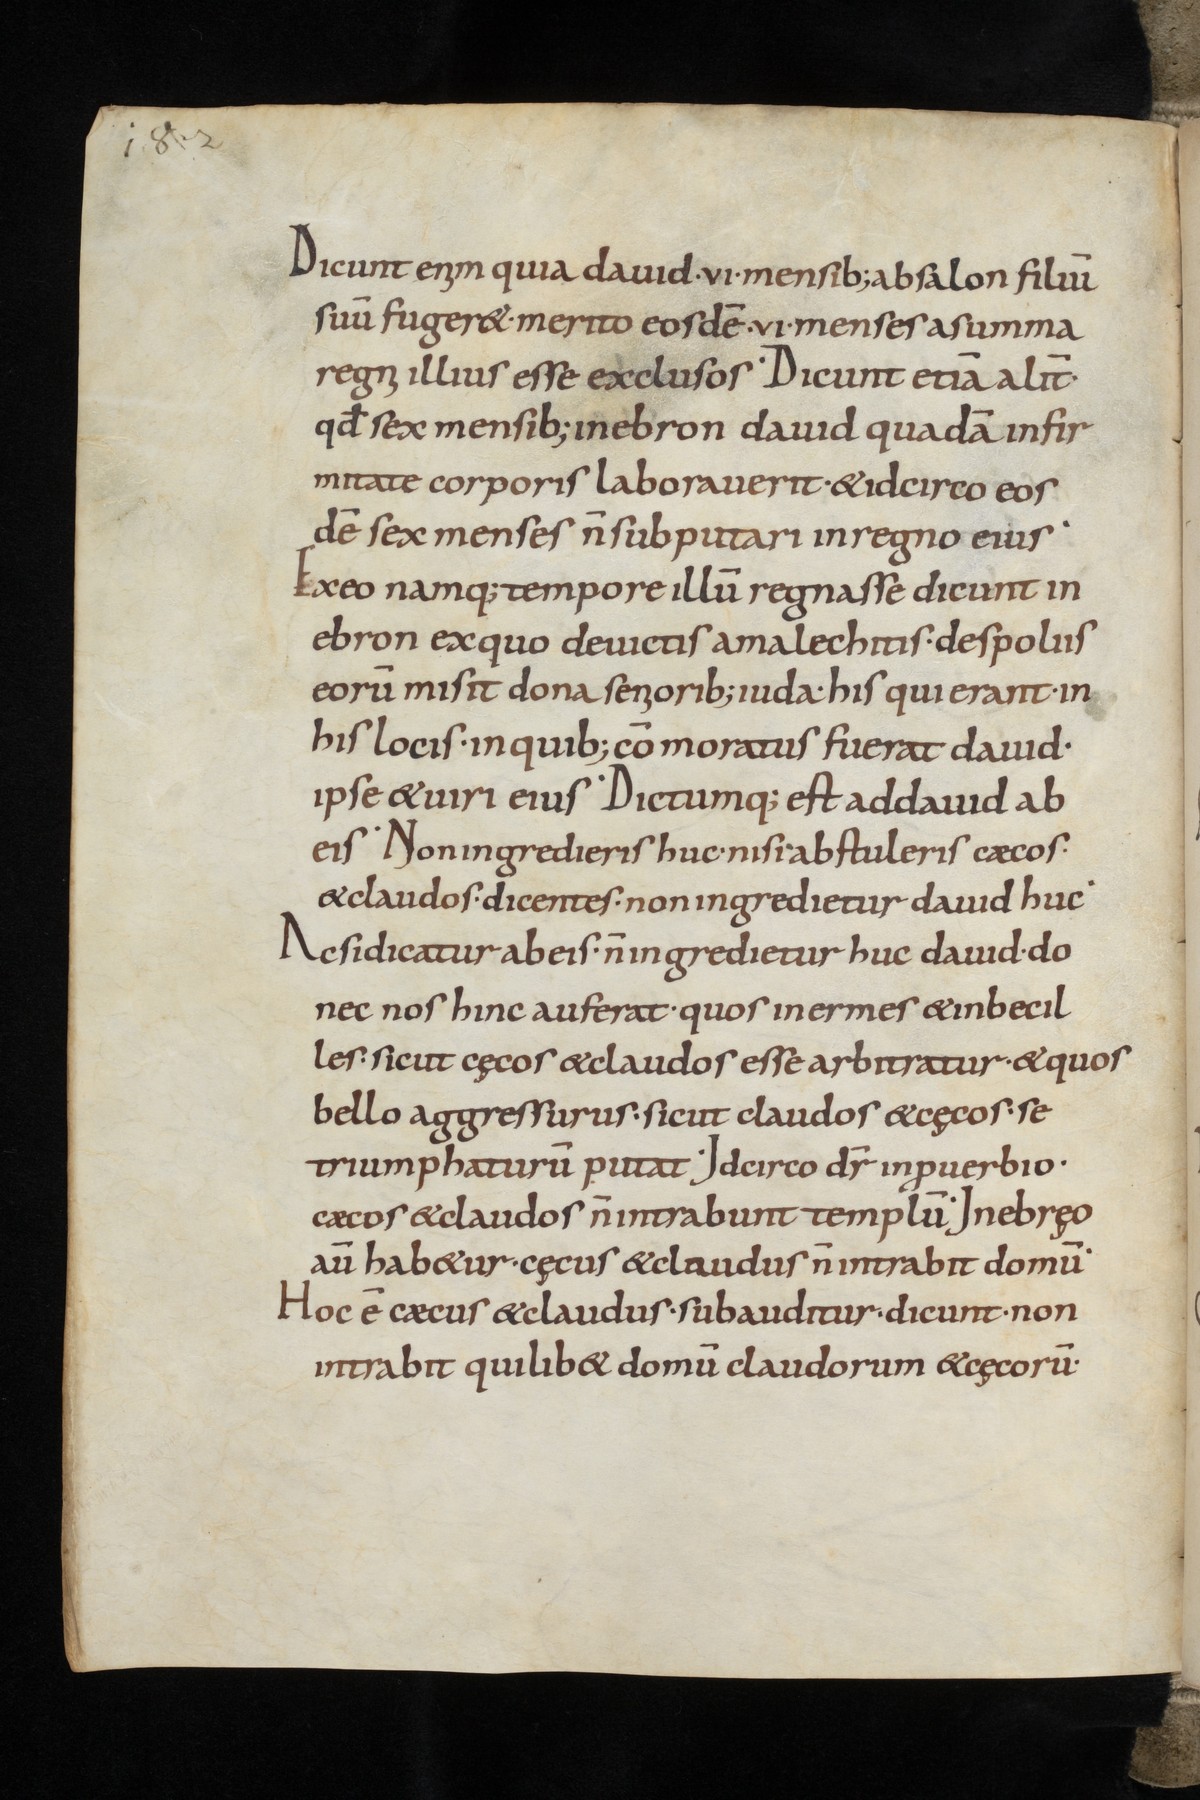 182
Dicunt enim quia dauid·vi·mensib;absalon filiū
suū fuger&·merito eosdē·vi·menses asumma
regni illius esse exclusos· Dicunt etiā alit̄·
qđ sex mensib;inebron dauid quadā infir
mitate corporis laborauerit·&idcirco eos
dē sex menses n̄ subputari inregno eius·
Exeo namq; tempore illū regnasse dicunt in
ebron exquo deuictis amalechitis·despoliis
eorū misit dona senioribus;iuda·his qui erant·in
his locis·inquib;cōmoratus fuerat dauid·
ipse &uiri eius· Dictumq; est addauid ab
eis· Noningredieris huc·nisi abstuleris cæcos·
&claudos·dicentes·noningredietur dauid huc·
Acsidicatur abeis·n̄ingredietur huc dauid·do
nec nos hinc auferat·quos inermes &inbecil
les·sicut cęcos &claudos esse arbitratur·&quos
bello aggressurus·sicut claudos &cęcos·se
triumphaturū putat· Idcirco dr̄ inꝓuerbio·
cæcos &claudos n̄intrabunt templū· Inebręo
aū hab&ur·cęcus &claudus n̄intrabit domū·
Hoc ē cæcus &claudus·subauditur·dicunt·non
intrabit quilib& domū claudorum &cęcorū·